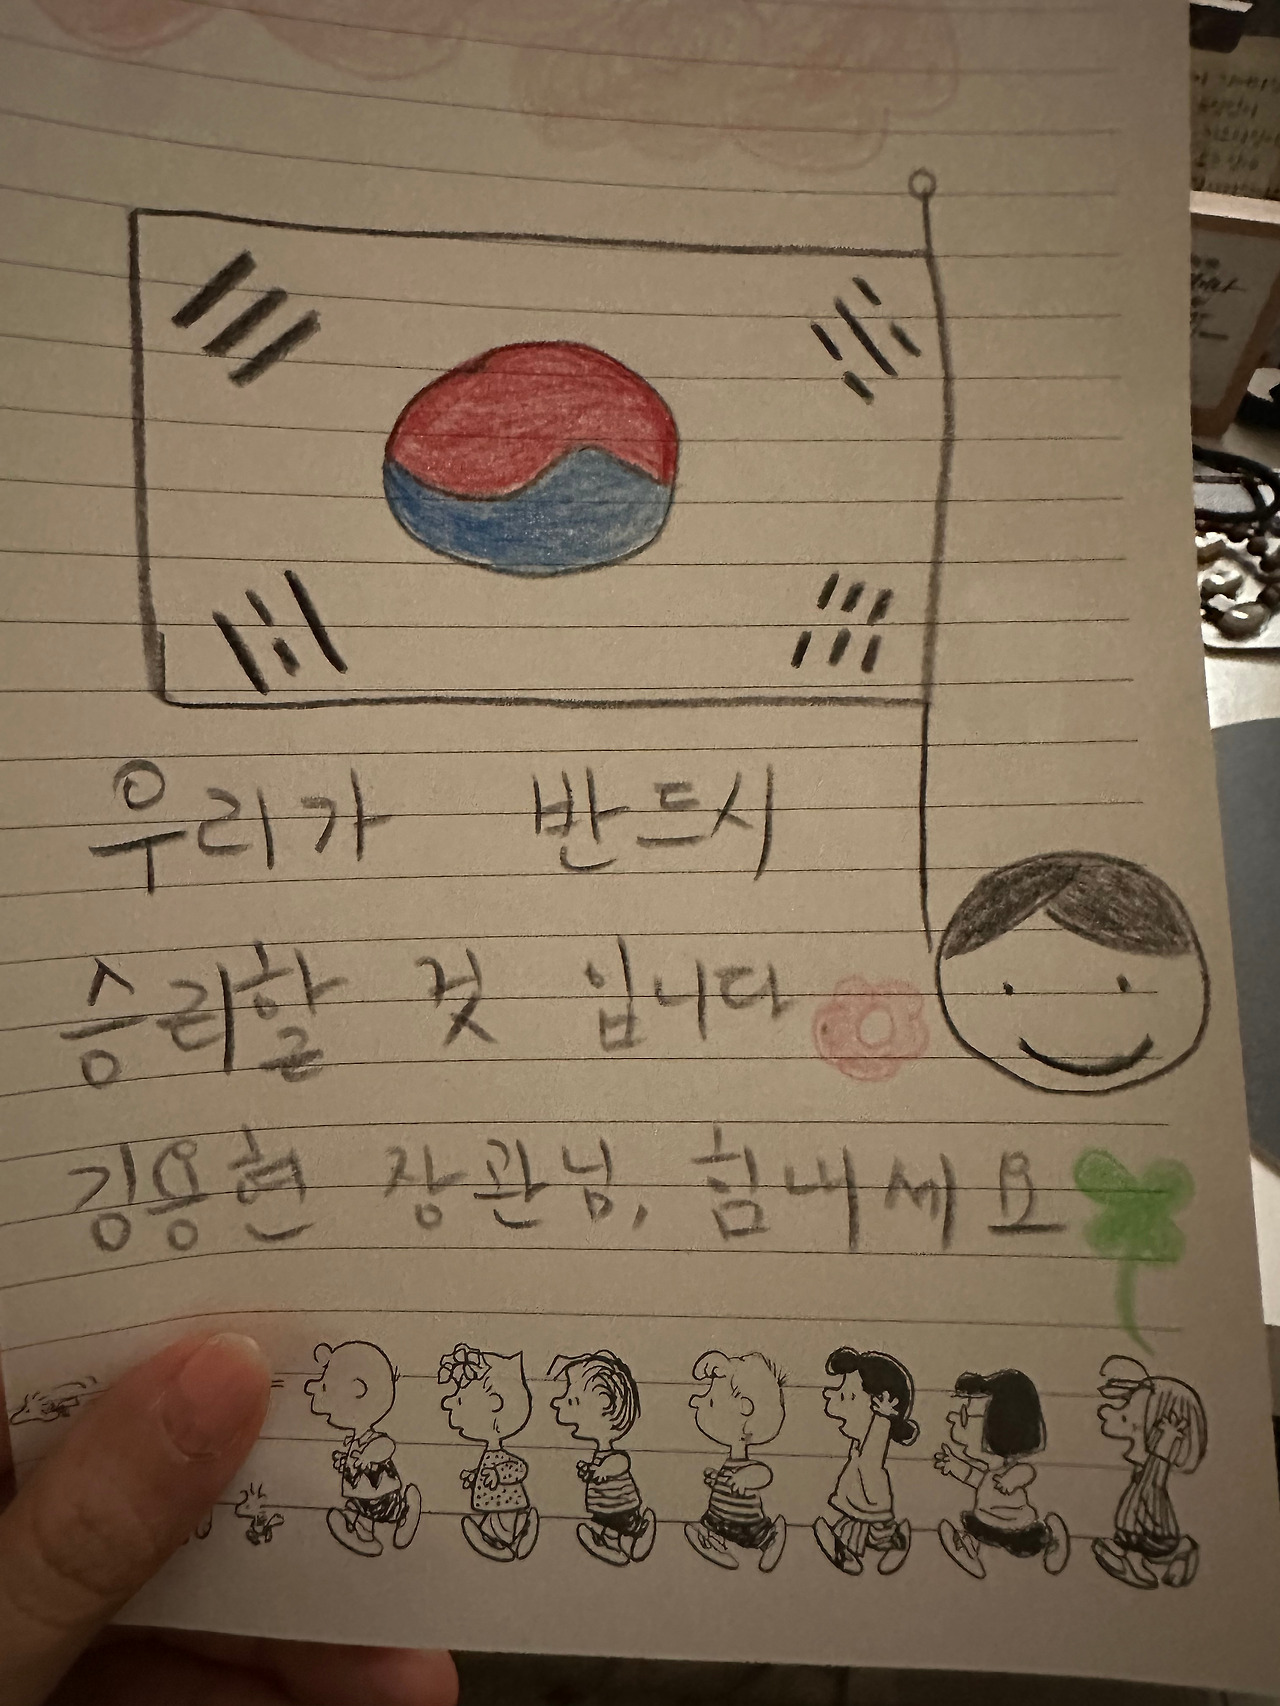 우리가 반드시
승리할 것 입니다
김용현 장관님, 힘내세요